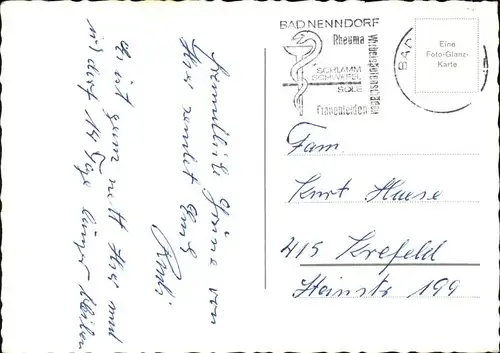 BAD NENNDORF
Rheuma
Wirbelsäulenschäden
SCHLAMM
SCHWEFEL
SOLE
Frauenleiden
BAD
Eine
Foto-Glanz-
Karte
Fam.
Kurt Haese
415 Krefeld
Steinstr 199
Herzliche Grüße von
Hier sendet Euch
Rudi
Es ist ganz nett hier und
ich darf 14 Tage länger bleiben